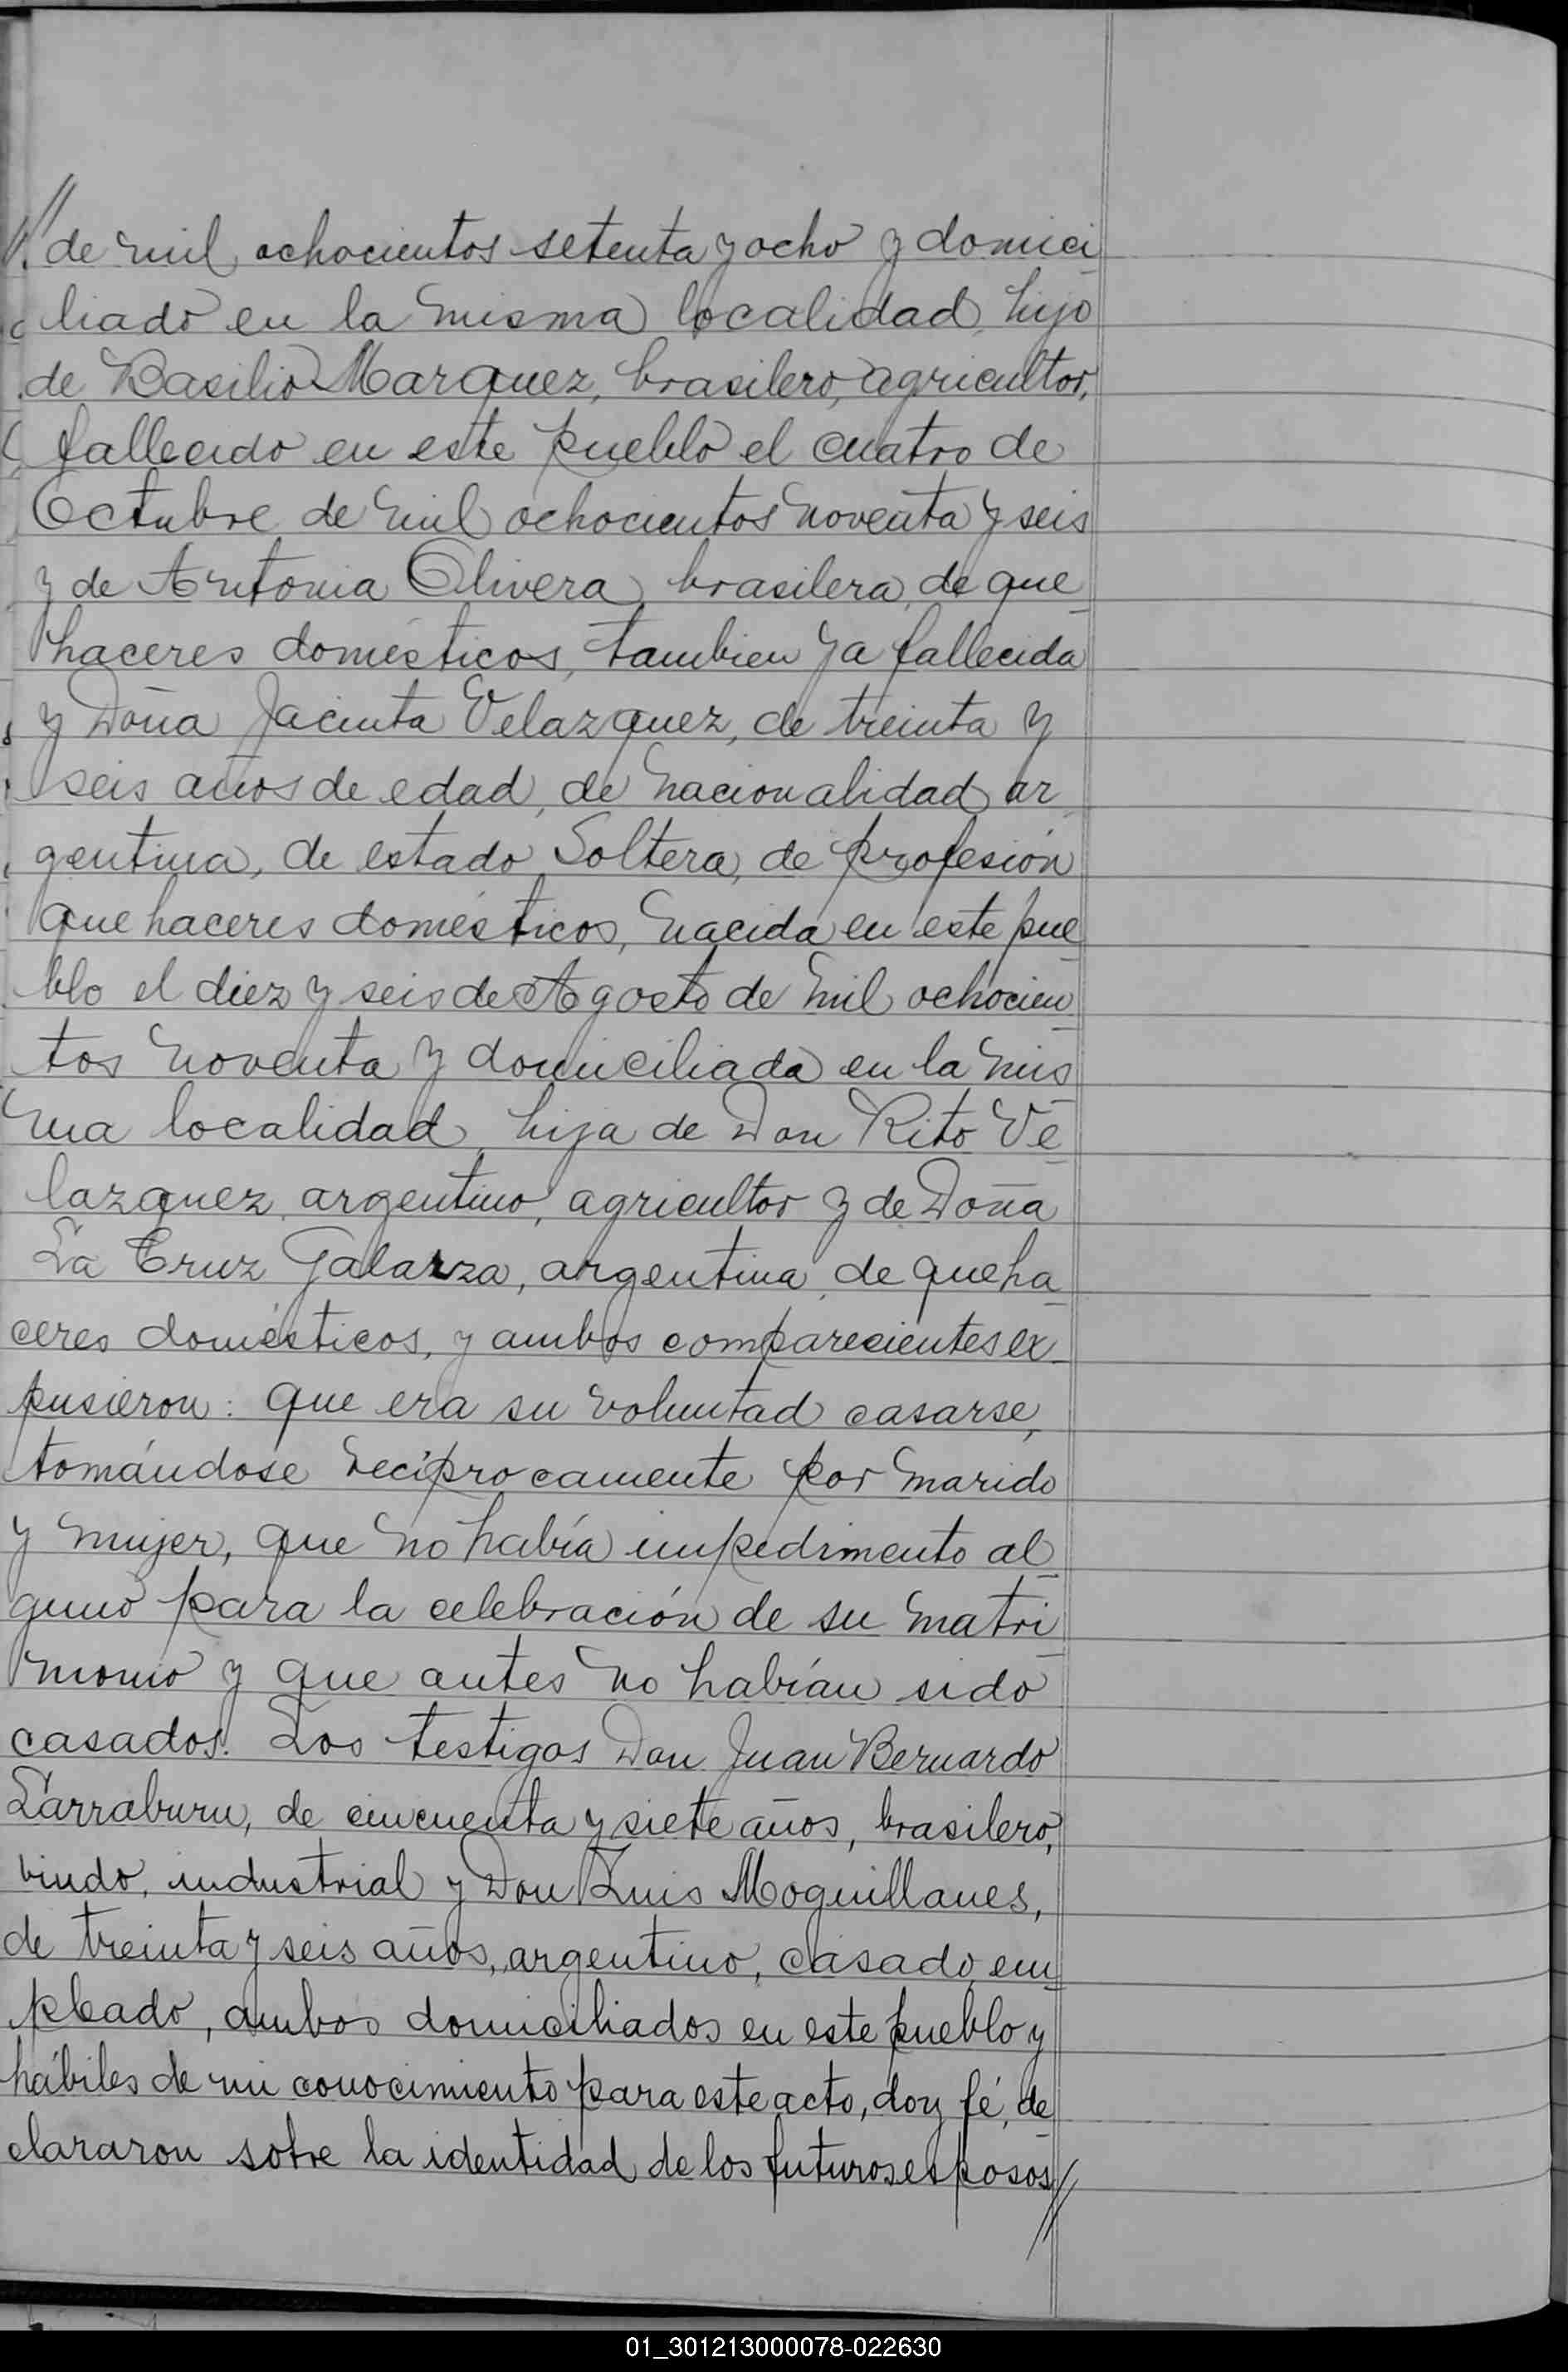 // de mil ochocientos setenta y ocho y domici
liado en la misma localidad, hijo
de Basilio Marquez, brasilero, agricultor,
fallecido en este pueblo el cuatro de
Octubre de mil ochocientos noventa y seis
y de Antonia Olivera, brasilera, de que_
haceres domésticos, tambien ya fallecida
y Doña Jacinta Velazquez, de treinta y
seis años de edad, de nacionalidad ar_
gentina, de estado soltera, de profesión
que haceres domésticos, nacida en este pue_
blo el diez y seis de Agosto de mil ochocien_
tos noventa y domiciliada en la mis_
ma localidad, hija de Don Rito Ve_
lazquez, argentino, agricultor y de Doña
La Cruz Galarza, argentina, de queha_
ceres domésticos, y ambos comparecientes ex_
pusieron: que era su voluntad casarse,
tomándose recíprocamente por marido
y mujer, que no había impedimento al_
guno para la celebración de su matri_
monio y que antes no habían sido
casados. Los testigos Don Juan Bernardo
Larraburu, de cincuenta y siete años, brasilero,
viudo, industrial y Don Luis Moquillanes,
de treinta y seis años, argentino, casado, em_
pleado, ambos domiciliados en este pueblo y
hábiles de mi conocimiento para este acto, doy fé, de_
clararon sobre la identidad de los futuros esposos//
01_301213000078-022630